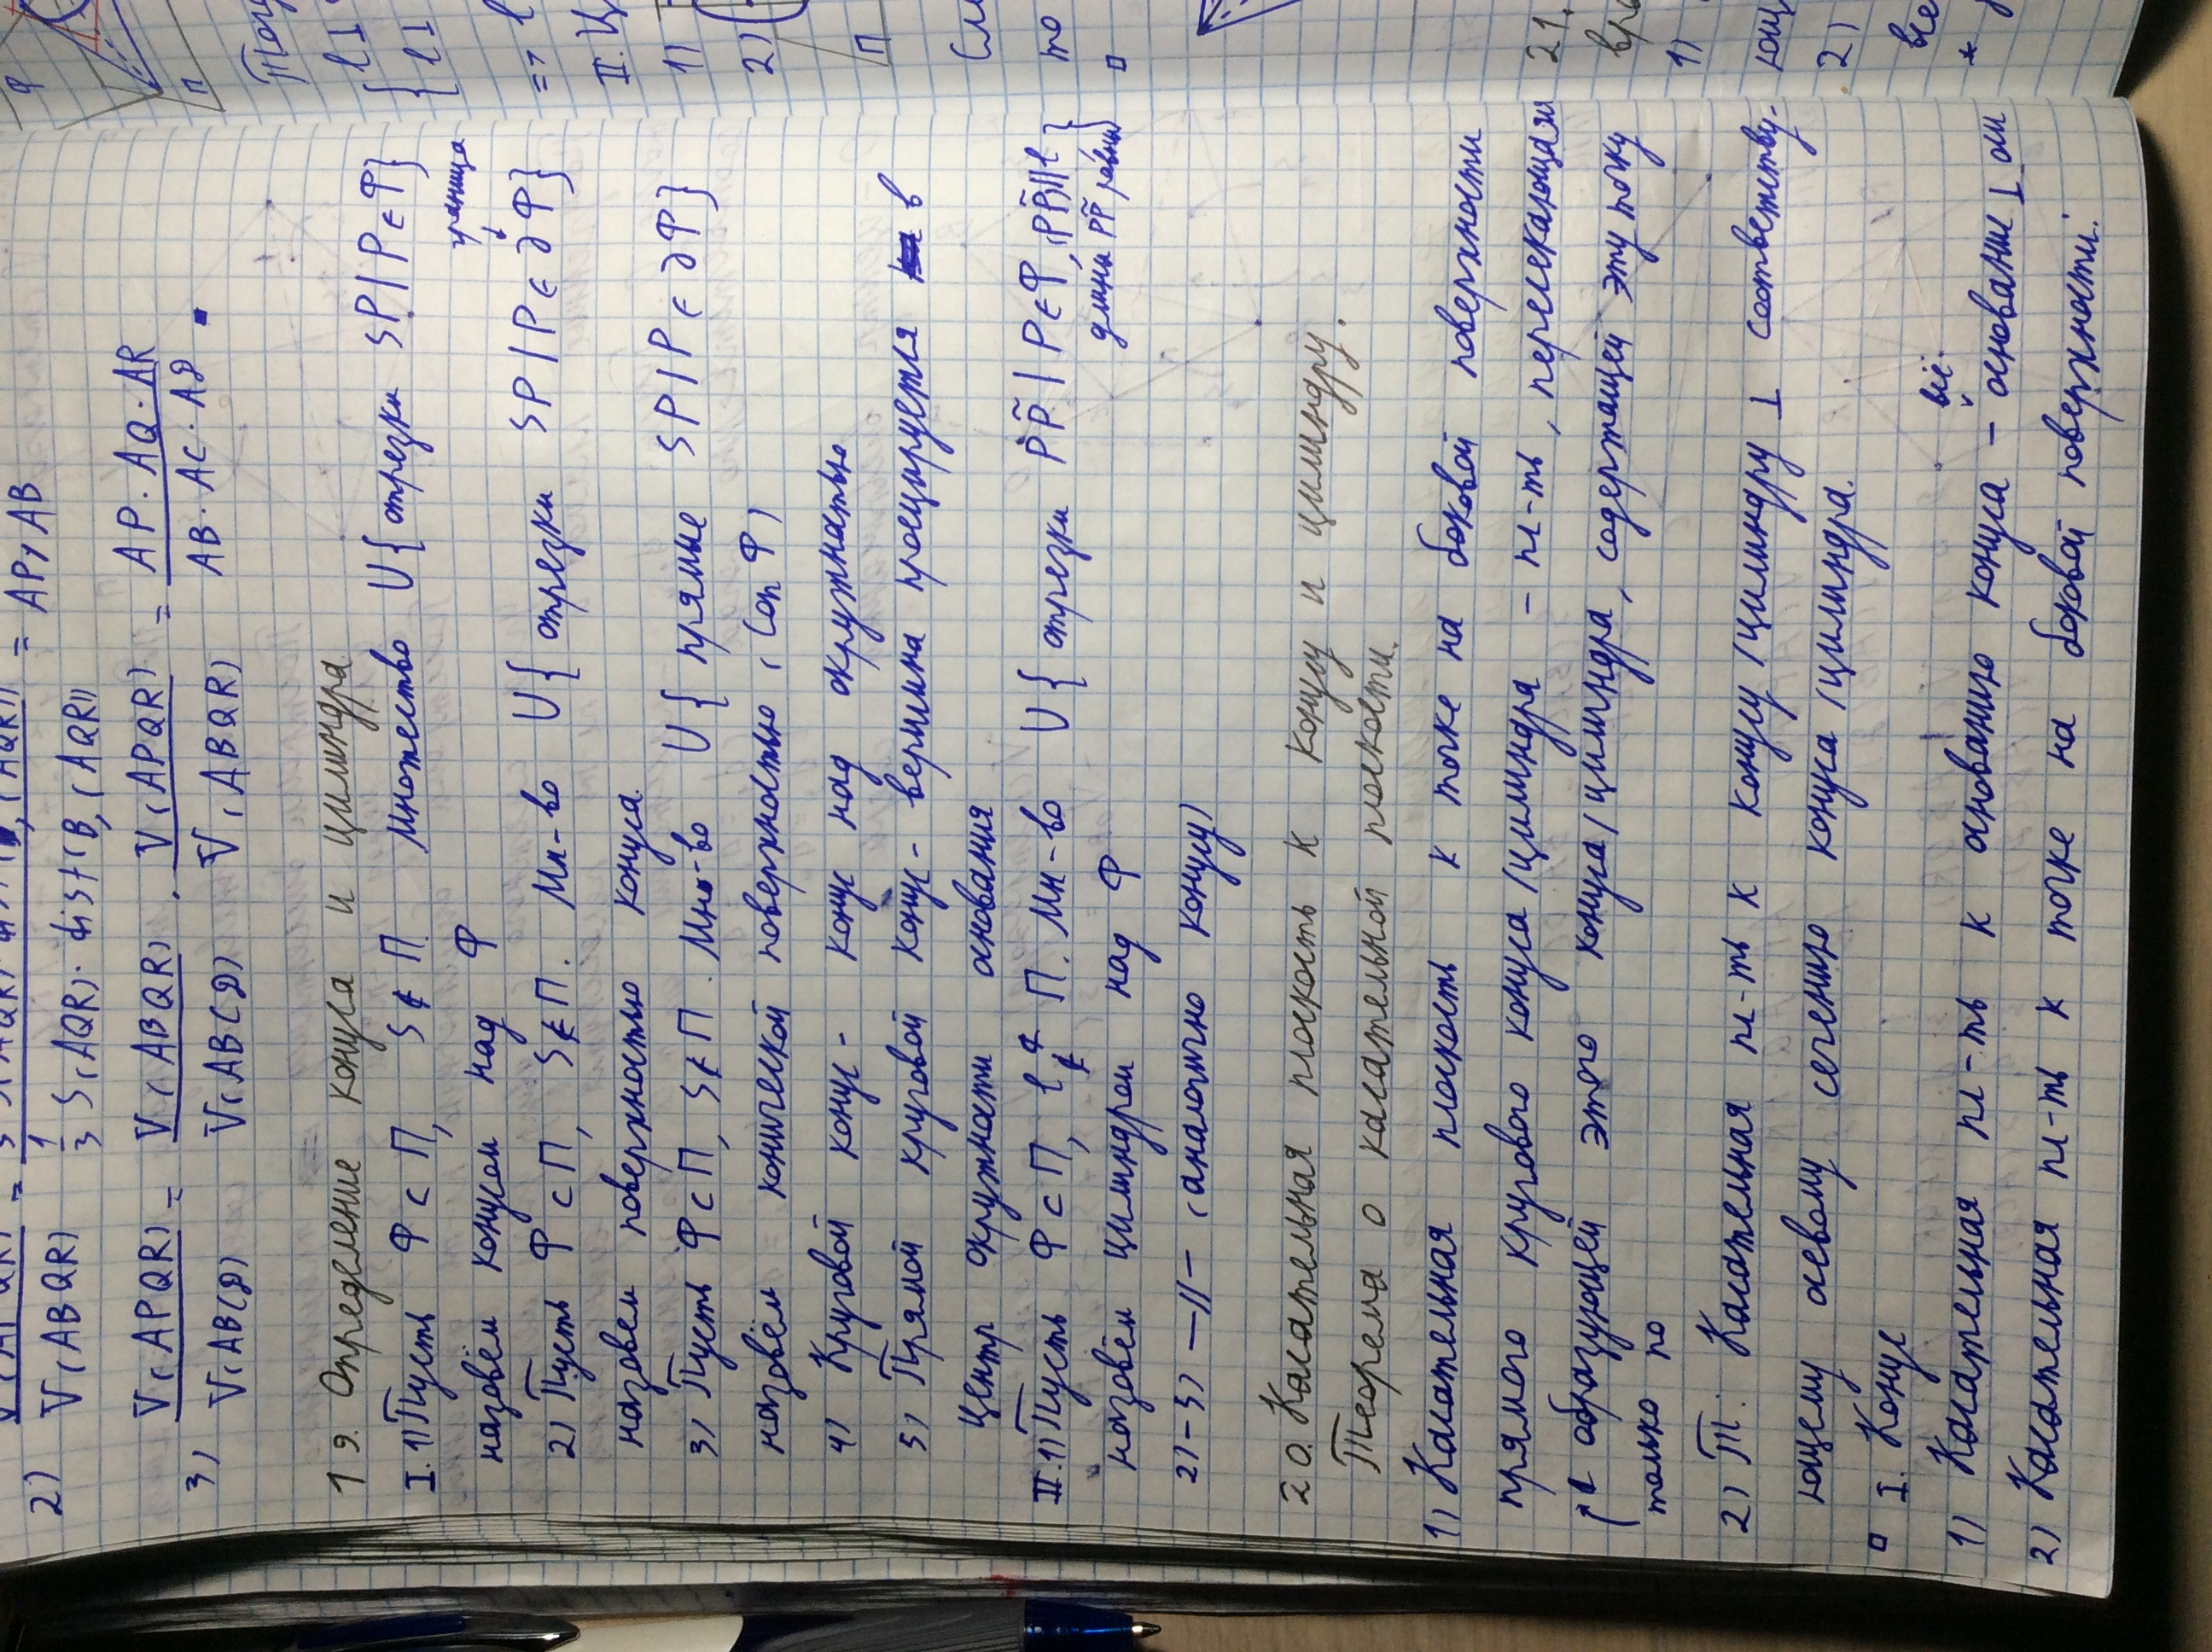 2) V(APQR) / V(ABQR) = 1/3 S(AQR)· dist( , (AQR)) / 1/3 S(AQR)· dist(B, (AQR)) = AP/AB
3) V(APQR) / V(ABCD) = V(ABQR) / V(ABCD) · V(APQR) / V(ABQR) = AP·AQ·AR / AB·AC·AD ▪
19. Определение конуса и цилиндра
I. 1) Пусть Ф ⊂ П, S ∉ П. Множество U{отрезки SP | P ∈ Ф}
назовём конусом над Ф
граница ↓
2) Пусть Ф ⊂ П, S ∉ П. Мн-во U{ отрезки SP | P ∈ ∂Ф}
назовем поверхностью конуса.
3) Пусть Ф ⊂ П, S ∉ П. Мн-во U{ прямые SP | P ∈ ∂Ф}
назовём конической поверхностью (Con Ф)
4) Круговой конус - конус над окружностью
5) Прямой круговой конус - вершина проецируется в
центр окружности основания
II. 1) Пусть Ф ⊂ П, l ⊄ П. Мн-во U{ отрезки PP̃ | P ∈ Ф, (PP̃) || l,
длины PP̃ равны}
назовём цилиндром над Ф
2)-5) —//— (аналогично конусу)
20. Касательная плоскость к конусу и цилиндру.
Теорема о касательной плоскости.
1) Касательная плоскость к точке на боковой поверхности
прямого кругового конуса/цилиндра - пл-ть, пересекающаяся
с образующей этого конуса/цилиндра, содержащей эту точку
только по
2) Т: Касательная пл-ть к конусу/цилиндру ⊥ соответству-
ющему осевому сечению конуса/цилиндра.
□ I. Конус
1) Касательная пл-ть к основанию конуса - всё основание ⊥ оси
2) Касательная пл-ть к точке на боковой поверхности:
Ф
П
l ⊥
l ⊥
=> l
II. Ц
1)
2)
П
то
□
21.
1)
ющ
2)
все
*